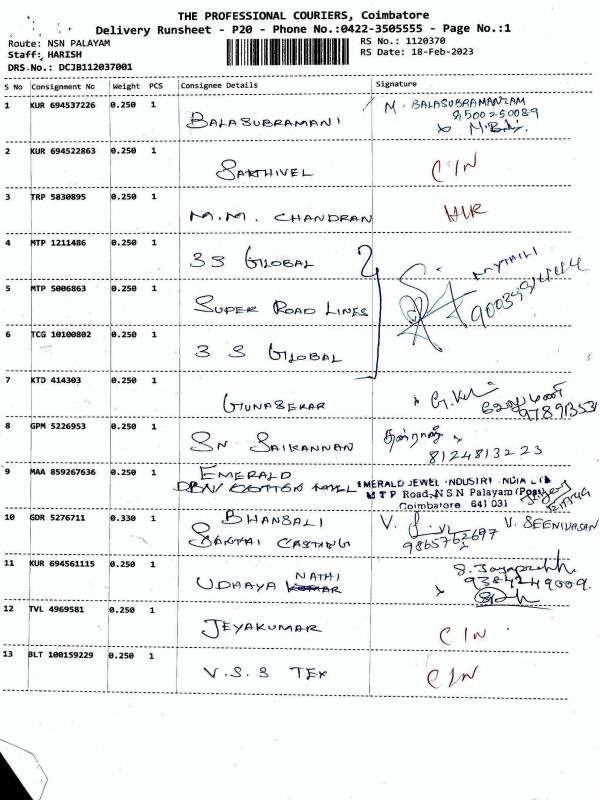 THE PROFESSIONAL COURIERS, Coimbatore
Delivery Runsheet - P20 - Phone No.:0422-3505555 - Page No.:1
Route: NSN PALAYAM
RS No.: 1120370
Staff: HARISH
RS Date: 18-Feb-2023
DRS.No.: DCJB112037001
S No Consignment No Weight PCS Consignee Details Signature
1 KUR 694537226 0.250 1 BALASUBRAMANI M. BALASUBRAMANIAM
8500250089
2 KUR 694522863 0.250 1 SAKTHIVEL C/N
3 TRP 5830895 0.250 1 M.M. CHANDRAN
4 MTP 1211486 0.250 1 3S GLOBAL
MYTHILI
5 MTP 5006863 0.250 1 SUPER ROAD LINES
6 TCG 10100802 0.250 1 3 S GLOBAL
7 KTD 414303 0.250 1 GUNASEKAR
வேலுமணி
8 GPM 5226953 0.250 1 SN SAIKANNAN
8124813223
9 MAA 859267636 0.250 1 EMERALD
EMERALD JEWEL INDUSTRY INDIA LTD
M T P Road, N.S.N Palayam (Post)
Coimbatore 641 031
10 GDR 5276711 0.330 1 BHANSALI
CASTING
V. SEENIVASAN
9865762697
11 KUR 694561115 0.250 1 UDHAYA NATHI
S. Jayaprakh
9384249009.
12 TVL 4969581 0.250 1 JEYAKUMAR C/N
13 BLT 100159229 0.250 1 V.S.S TEX C/N